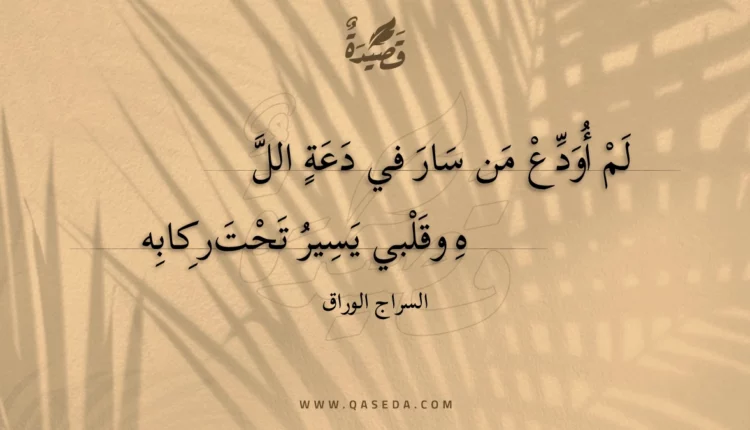 قَصِيْدَةٌ
لَمْ أُوَدِّعْ مَن سَارَ في دَعَةٍ اللَّ
هِ وقَلْبي يَسِيرُ تَحْتَ رِكابِه
السراج الوراق
WWW.QASEDA.COM